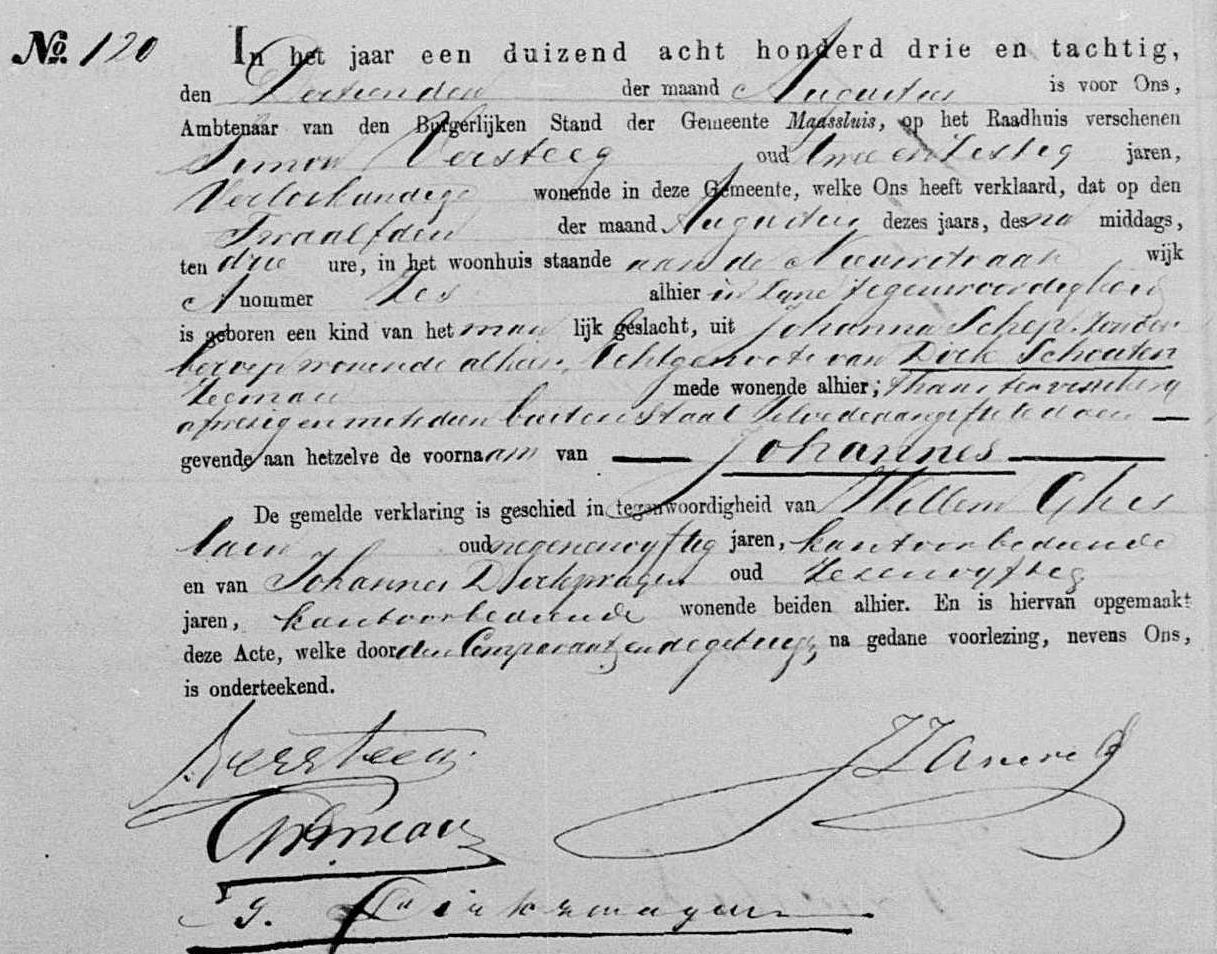 No. 120 In het jaar een duizend acht honderd drie en tachtig,
den Dertienden der maand Augustus is voor Ons,
Ambtenaar van den Burgerlijken Stand der Gemeente Maassluis, op het Raadhuis verschenen
Simon Versteeg oud twee en zestig jaren,
Verloskundige wonende in deze Gemeente, welke Ons heeft verklaard, dat op den
Twaalfden der maand Augustus dezes jaars, des na middags,
ten drie ure, in het woonhuis staande aan de Nieuwstraat wijk
A nommer Zes alhier in zyne tegenwoordigheid
is geboren een kind van het man lijk geslacht, uit Johanna Schep, zonder
beroep wonende alhier, Echtgenoote van Dirk Schouten
Zeeman mede wonende alhier; thans ter visscherij
afwezig en mitsdien buiten staat zelve de aangifte te doen
gevende aan hetzelve de voornaam van Johannes
De gemelde verklaring is geschied in tegenwoordigheid van Willem Ghis
lain oud negenenvyftig jaren, kantoorbediende
en van Johannes Dirkzwager oud zesenvyftig
jaren, kantoorbediende wonende beiden alhier. En is hiervan opgemaakt
deze Acte, welke door den Comparant en de getuigen, na gedane voorlezing, nevens Ons,
is onderteekend.
S. Versteeg
J. Dirkzwager